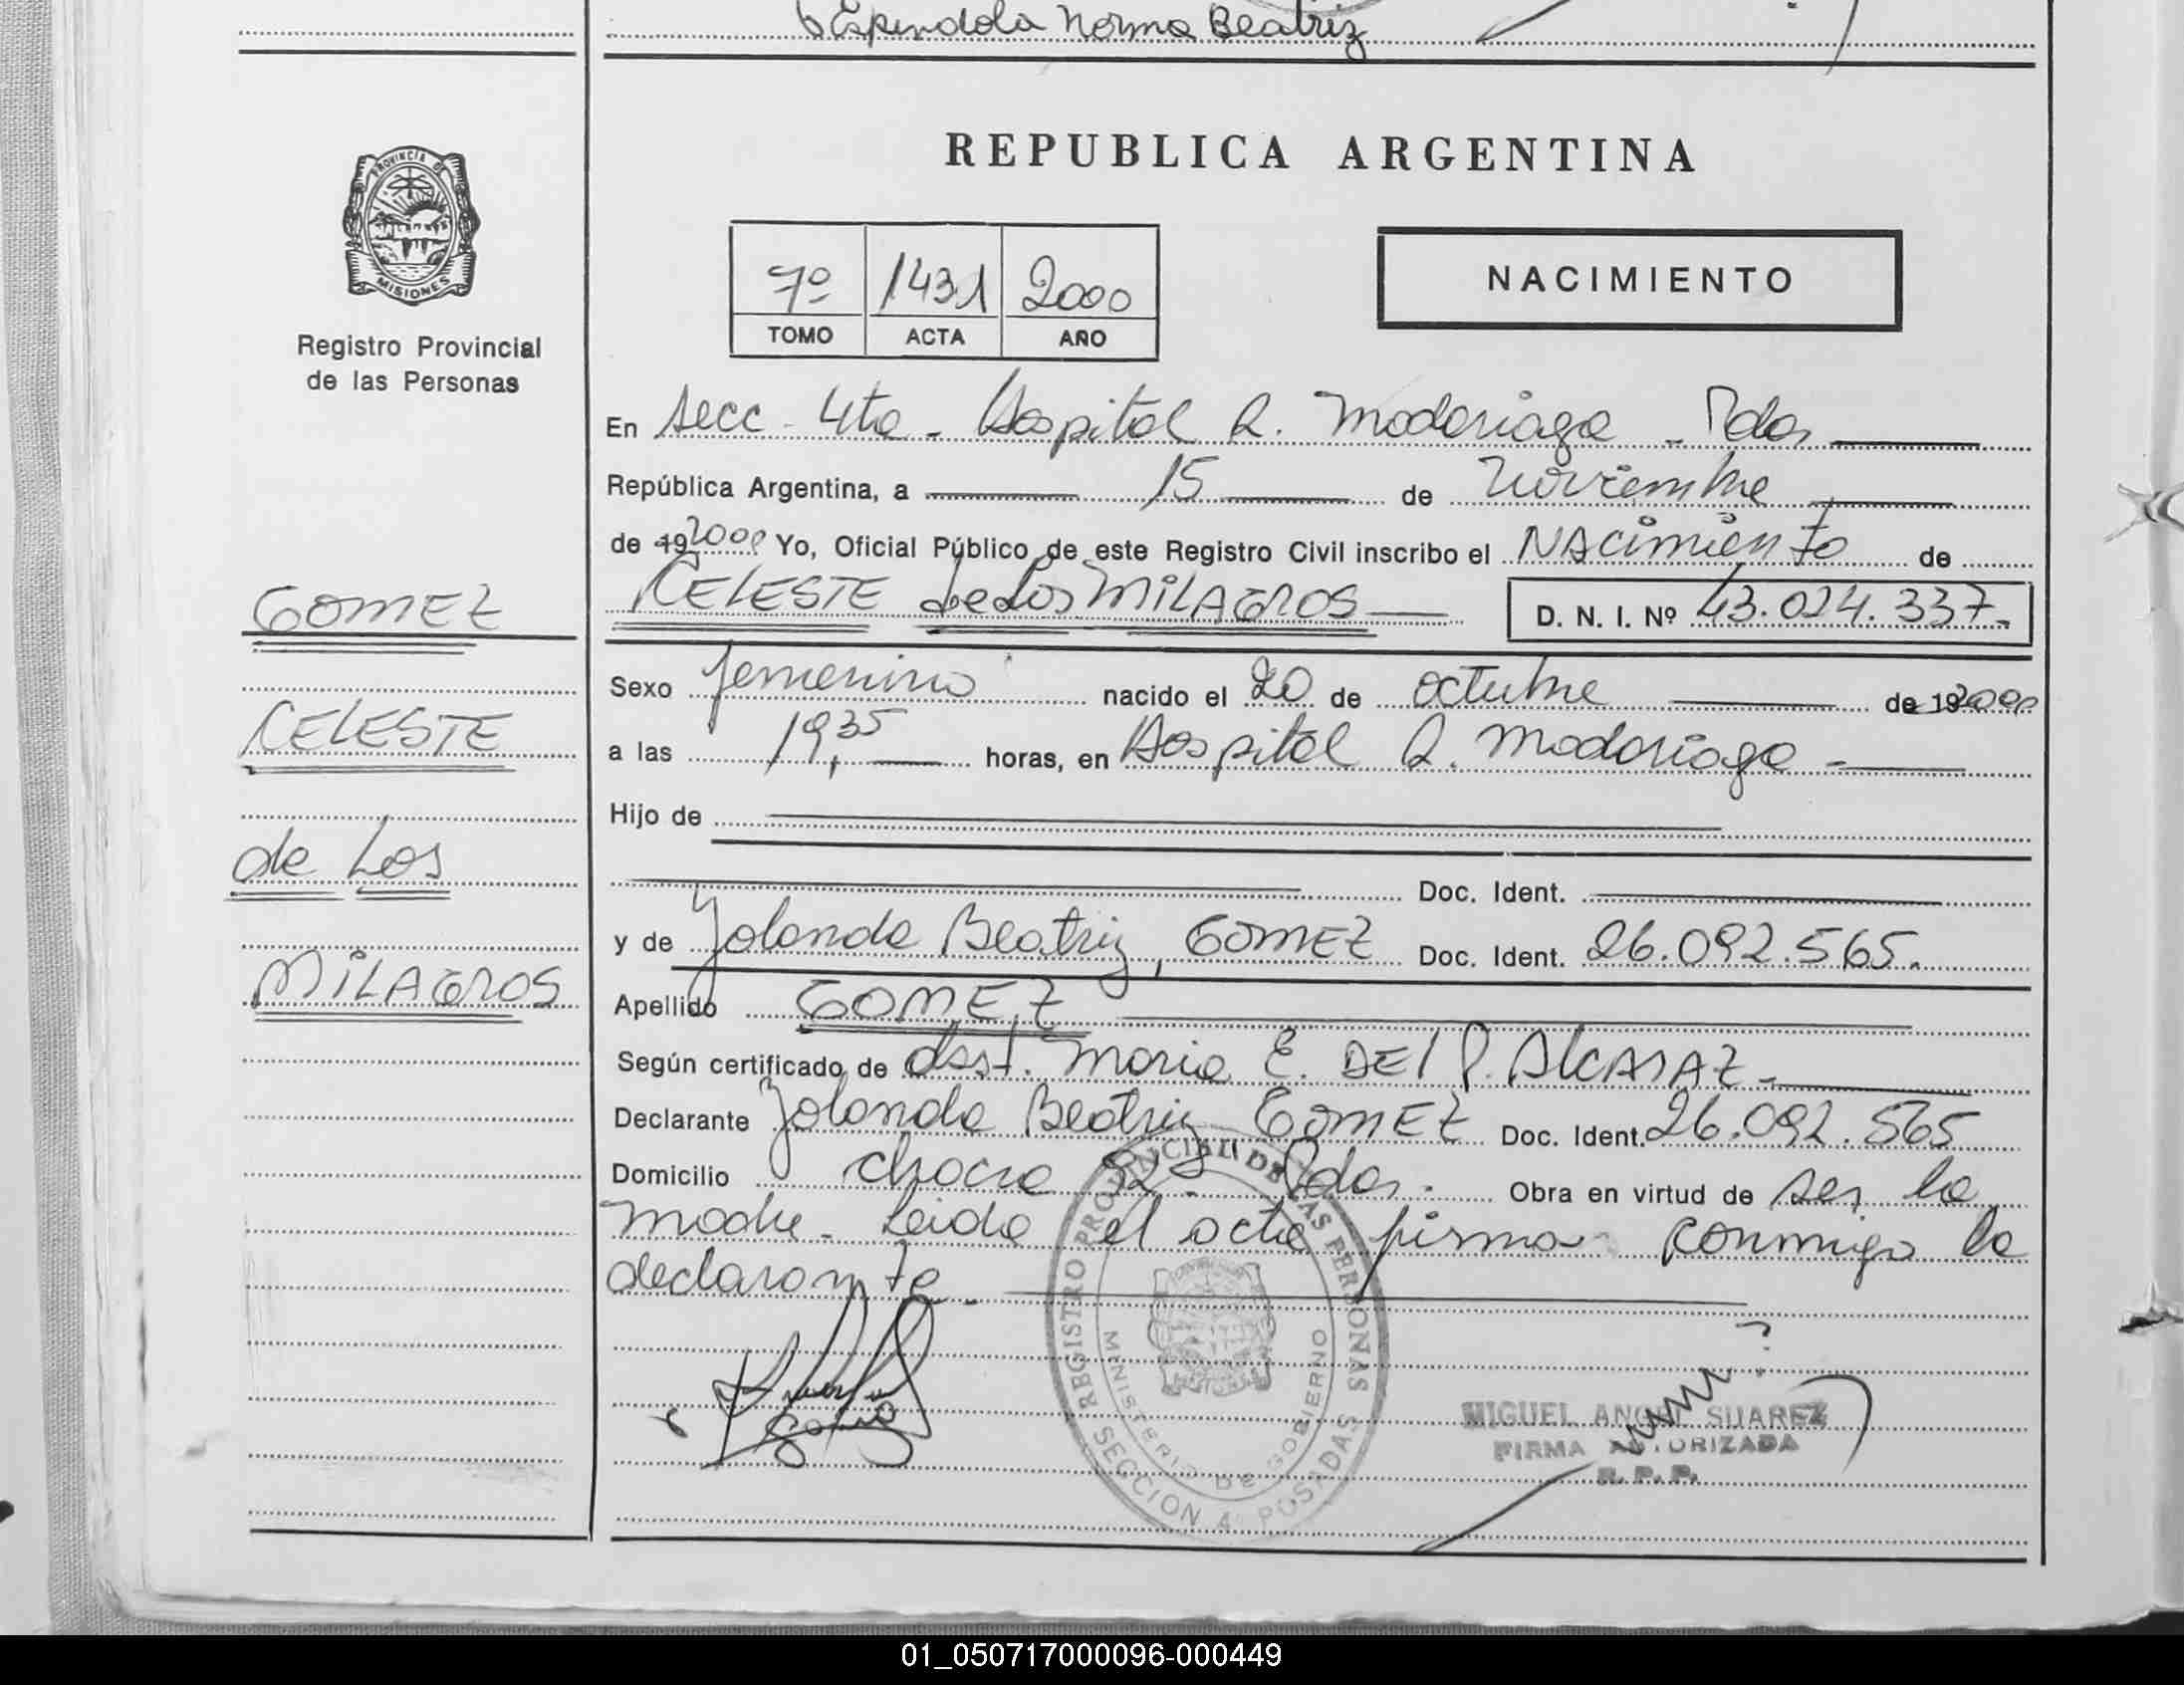 Espindola Norma Beatriz
PROVINCIA DE
MISIONES
Registro Provincial
de las Personas
GOMEZ
CELESTE
de Los
MiLAGROS
REPUBLICA ARGENTINA
7º 1431 2000
TOMO ACTA AÑO
NACIMIENTO
En Secc - 4ta - Hospital R. Madariaga - Pdas
República Argentina, a 15 de Noviembre
de 192000 Yo, Oficial Público de este Registro Civil inscribo el NAcimiento de
CELESTE de Los MiLAGROS D. N. I. Nº 43.024.337-
Sexo femenino nacido el 20 de octubre de 192000
a las 19,35 horas, en Hospital R. Madariaga -
Hijo de
Doc. Ident.
y de Yolanda Beatriz, GOMEZ Doc. Ident. 26.092.565.
Apellido GOMEZ
Según certificado de Obst. Maria E. DEl P. AlcARAZ-
Declarante Yolanda Beatriz GOMEZ Doc. Ident. 26.092.565
Domicilio chacra 32 Pdas. Obra en virtud de ser la
madre - Leida el acta firma conmigo la
declarante -
REGISTRO PROVINCIAL DE LAS PERSONAS
MINISTERIO DE GOBIERNO
SECCION 4 POSADAS
MIGUEL ANGEL SUAREZ
FIRMA AUTORIZADA
R. P. P.
01_050717000096-000449